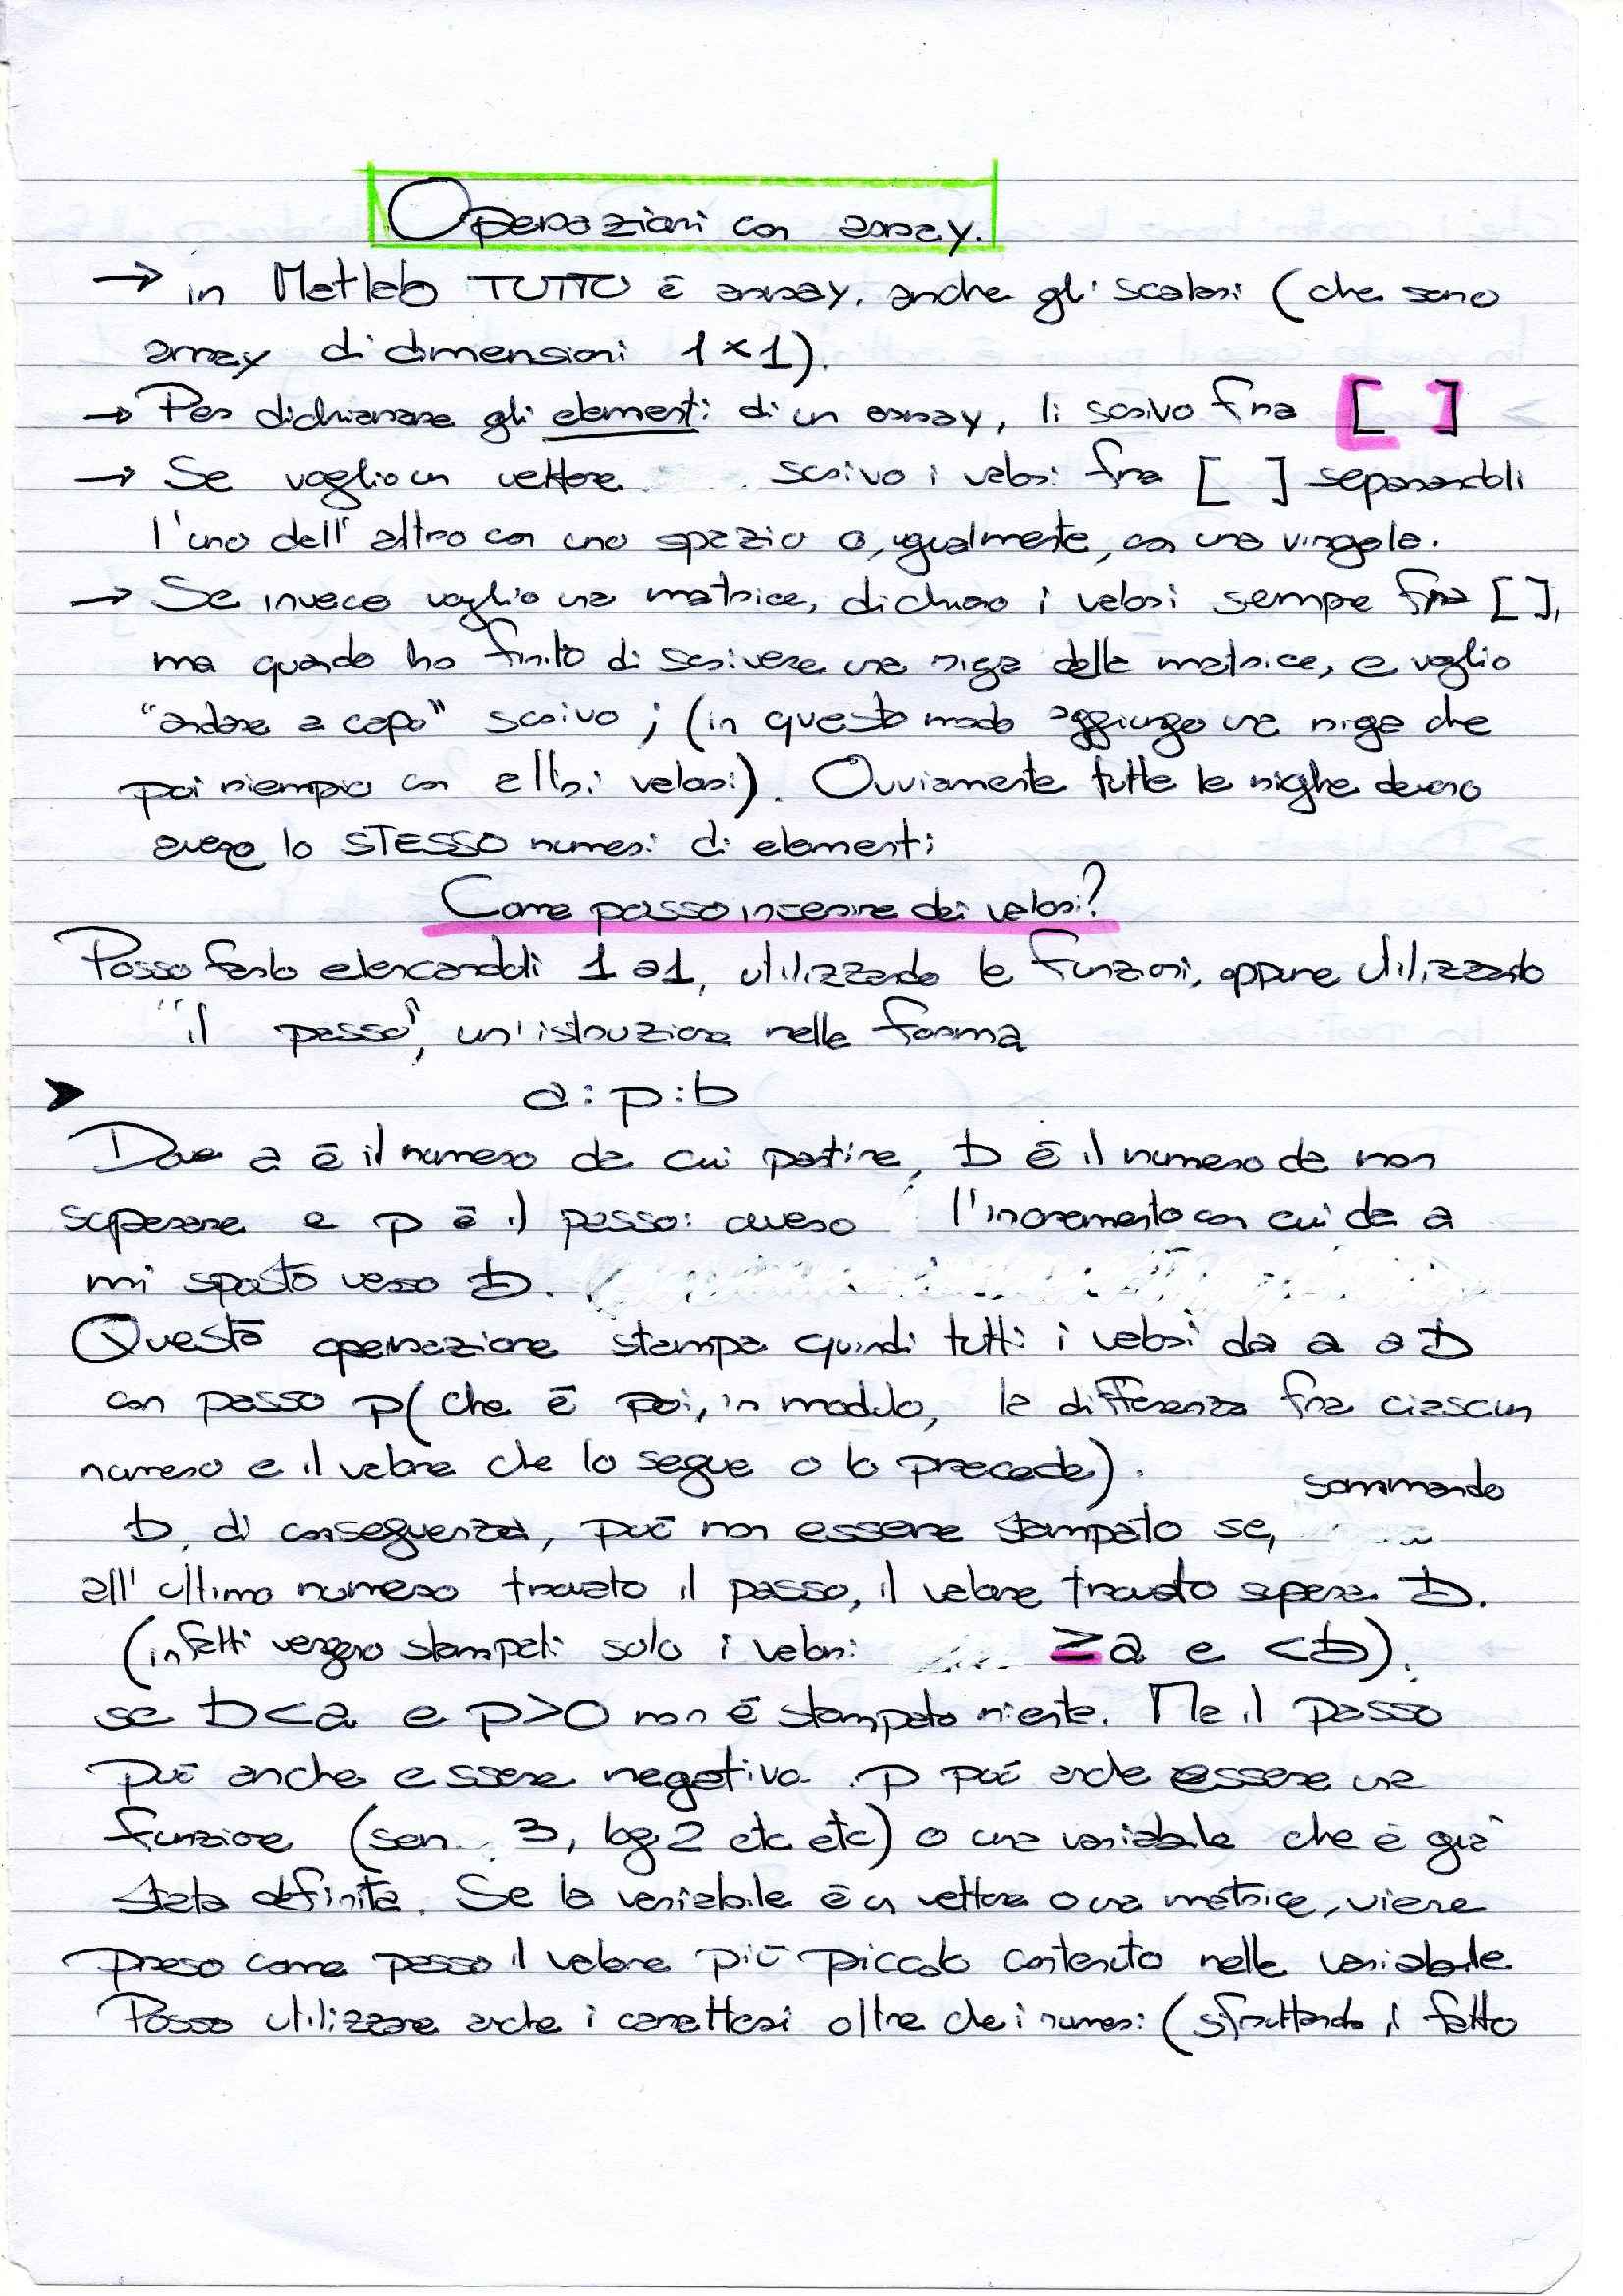 Operazioni con array.
→ in Matlab TUTTO è array, anche gli scalari (che sono
array di dimensioni 1×1).
→ Per dichiarare gli elementi di un array, li scrivo fra [ ]
→ Se voglio un vettore scrivo i valori fra [ ] separandoli
l'uno dall'altro con uno spazio o, ugualmente, con una virgola.
→ Se invece voglio una matrice, dichiaro i valori sempre fra [ ],
ma quando ho finito di scrivere una riga della matrice, e voglio
"andare a capo" scrivo ; (in questo modo aggiungo una riga che
poi riempio con altri valori). Ovviamente tutte le righe devono
avere lo STESSO numeri di elementi
Come posso inserire dei valori?
Posso farlo elencandoli 1 a 1, utilizzando le funzioni, oppure utilizzando
"il passo", un'istruzione nella forma
➤ a:p:b
Dove a è il numero da cui partire, b è il numero da non
superare e p è il passo: ovvero l'incremento con cui da a
mi sposto verso b.
Questa operazione stampa quindi tutti i valori da a a b
con passo p (che è poi, in modulo, la differenza fra ciascun
numero e il valore che lo segue o lo precede).
sommando
b, di conseguenza, può non essere stampato se,
all'ultimo numero trovato il passo, il valore trovato supera b.
(infatti vengono stampati solo i valori ≥a e <b).
se b<a e p>0 non è stampato niente. Ma il passo
può anche essere negativo. p può anche essere una
funzione (sen 3, log 2 etc etc) o una variabile che è già
stata definita. Se la variabile è un vettore o una matrice, viene
preso come passo il valore più piccolo contenuto nella variabile
Posso utilizzare anche i caratteri oltre che i numeri (sfruttando il fatto